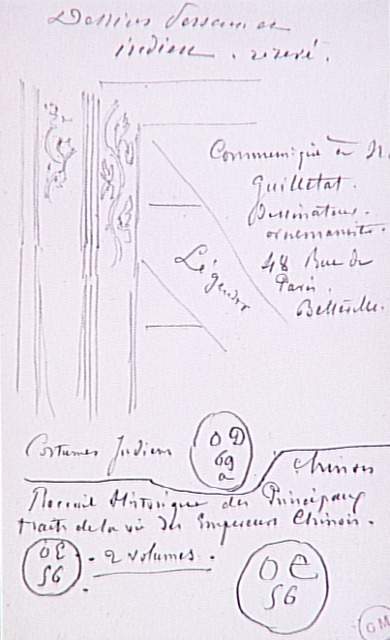 Dessins Persan et
indien
Communiqué à M.
Guilletat.
Dessinateur.
ornemaniste.
48 Rue de
Paris.
Belleville.
Légendes
Costumes Indiens
OD
69
a
Chinois
Recueil Historique des Principaux
traits de la vie des Empereurs Chinois.
OE
56
2 volumes.
OE
56